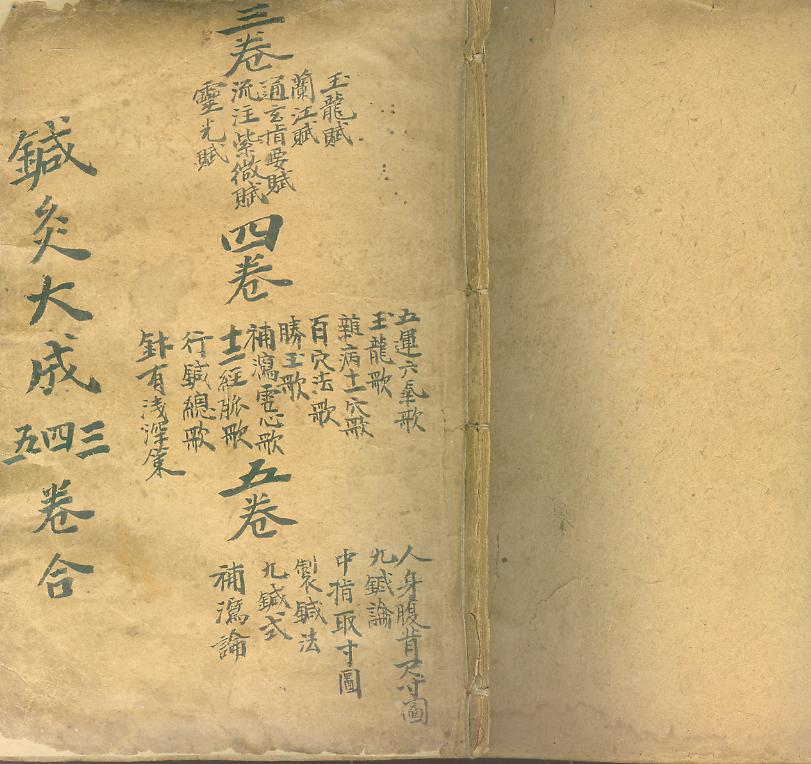 三卷
玉龍賦
蘭江賦
通玄指要賦
流注紫微賦
靈光賦
四卷
五運六氣歌
玉龍歌
雜病十一穴歌
百穴法歌
勝玉歌
補瀉雪心歌
十二經脈歌
行鍼總歌
針有浅深策
五卷
人身腹背尺寸圖
九鍼論
中指取寸圖
製鍼法
九鍼式
補瀉論
鍼灸大成三四五卷合